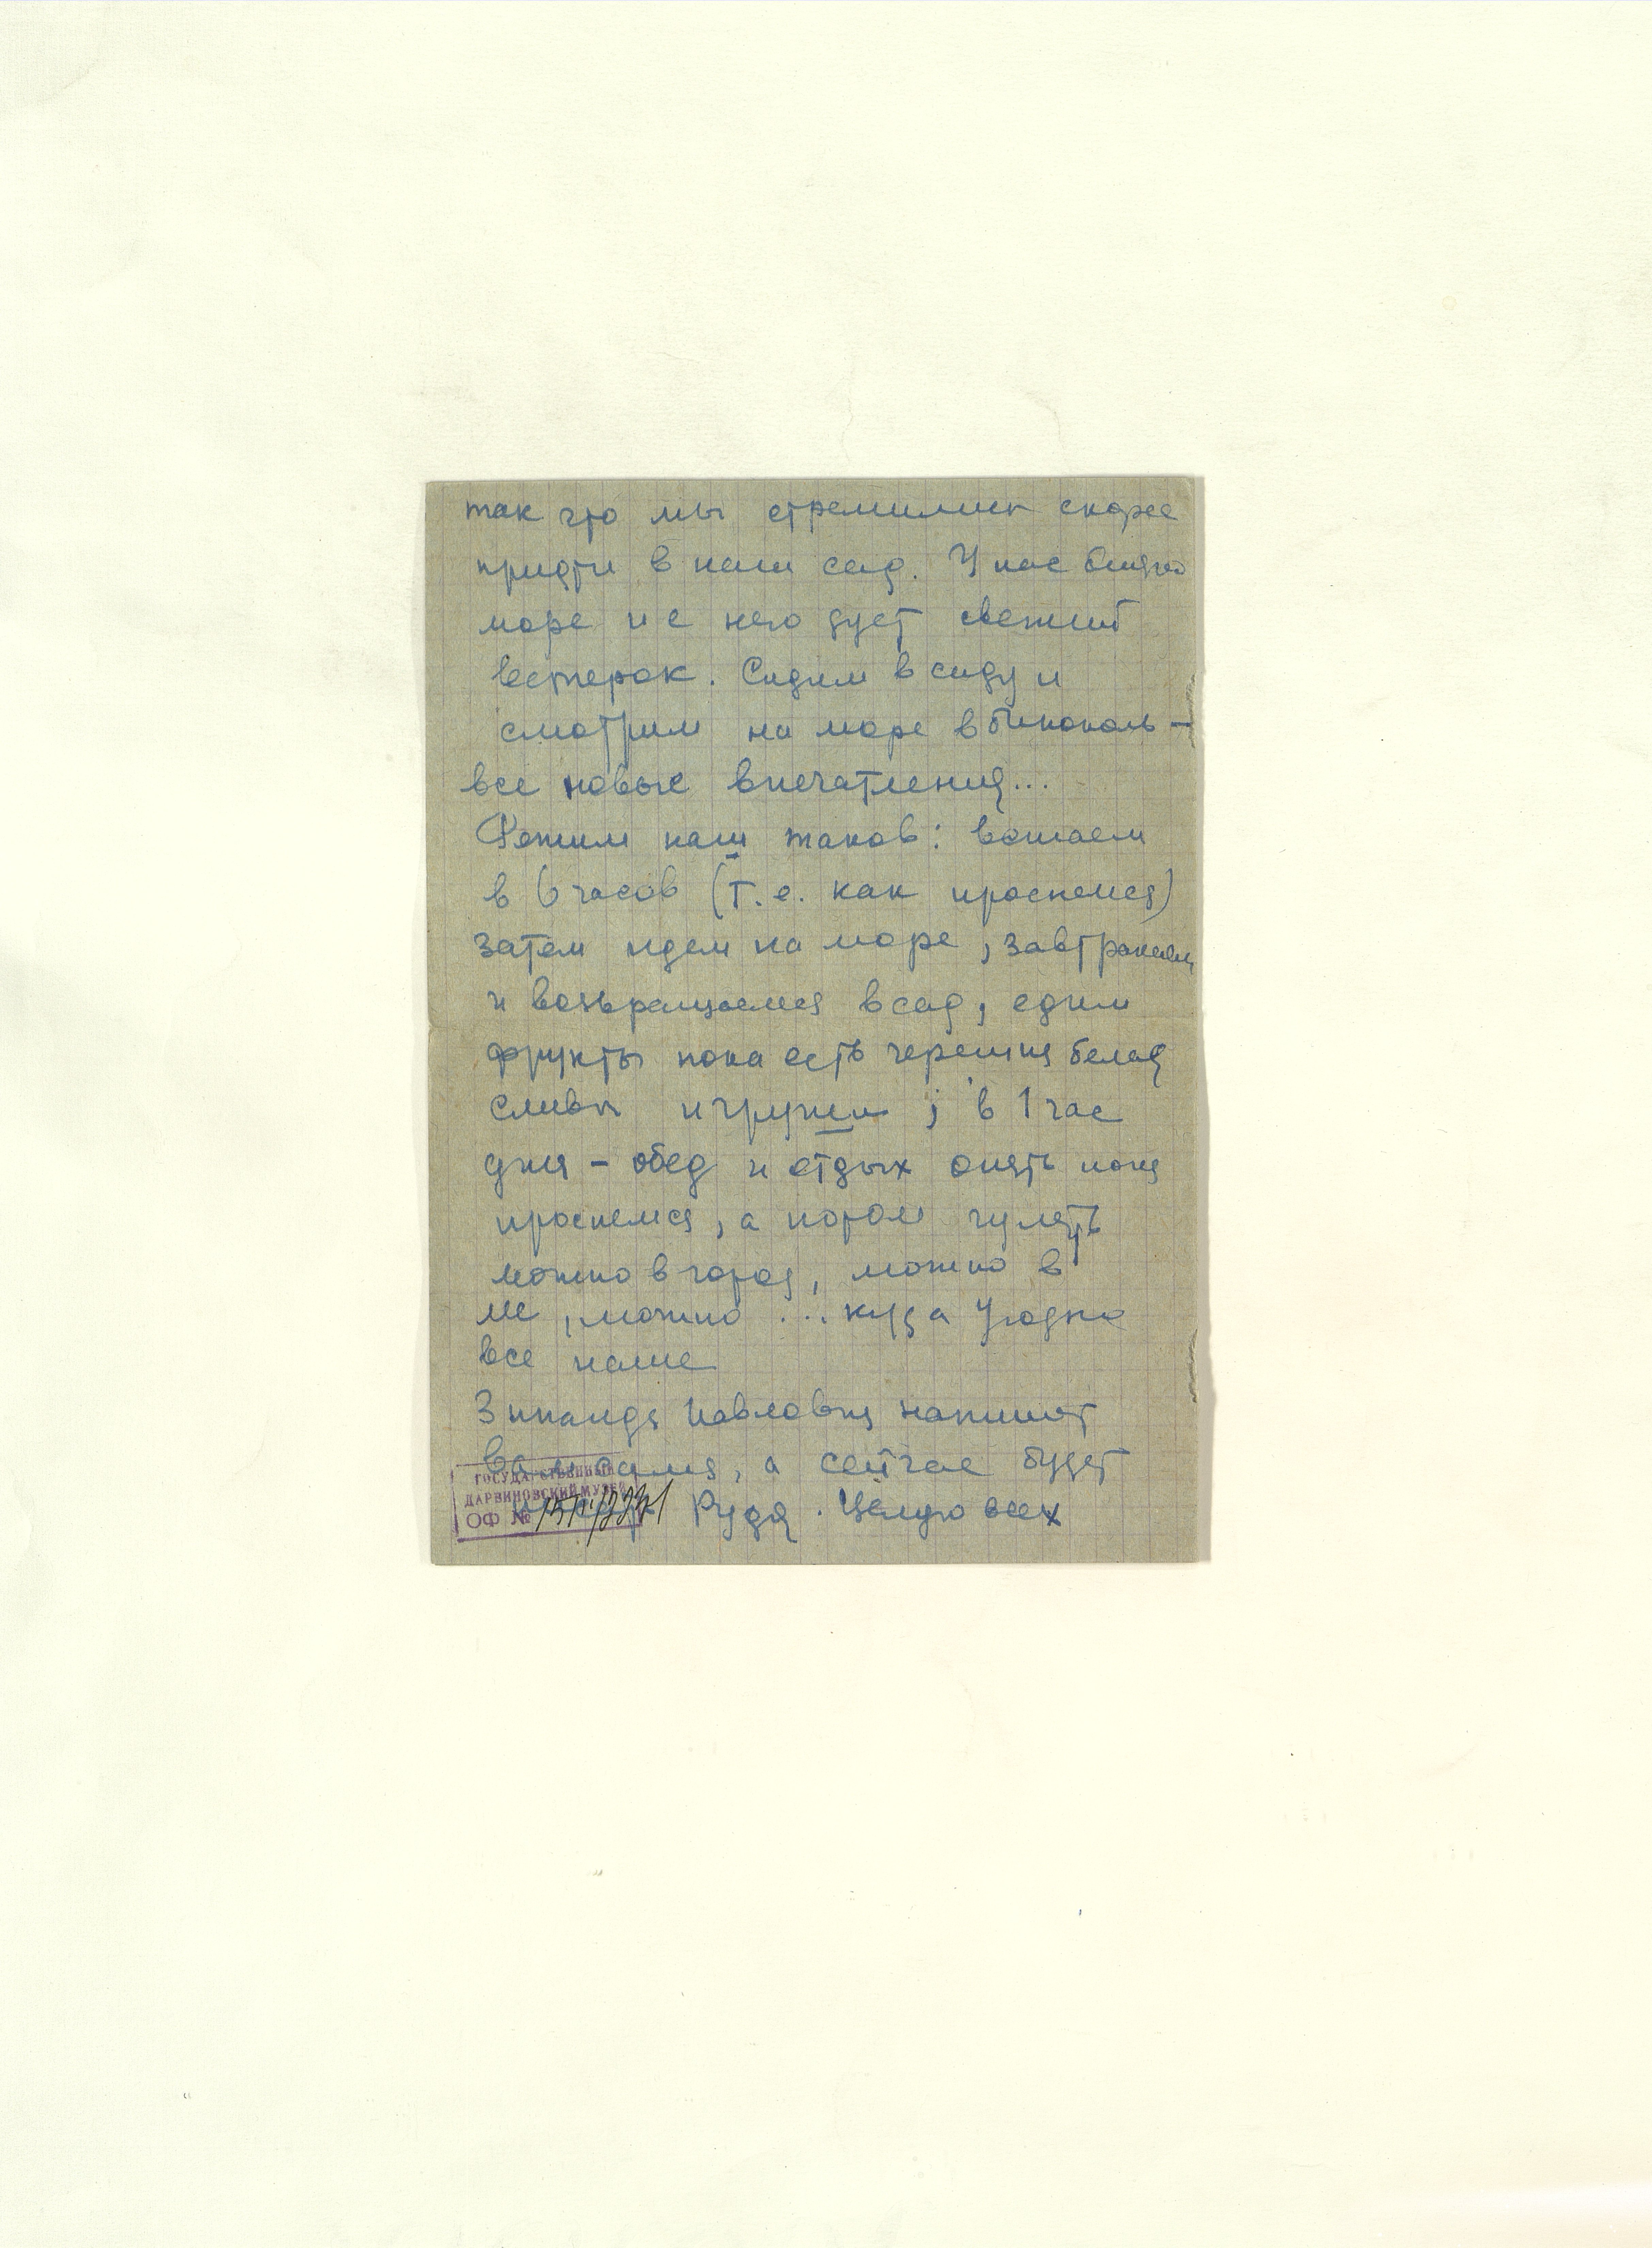 так что мы стремились скорее
придти в наш сад. У нас близко
море и с него дует свежий
ветерок. Сидим в саду и
смотрим на море в бинокль —
все новые впечатления...
Режим наш таков: встаем
в 6 часов (т.е. как проснемся)
затем идем на море, завтракаем
и возвращаемся в сад, едим
фрукты пока есть черешня белая
сливы и груши; в 1 час
дня – обед и отдых опять пока
проснемся, а потом гулять
можно в город, можно в
, можно ... куда угодно
все наше
Зинаида Павловна напишет
Вам сама, а сейчас будет
Рудя. Целую всех
ГОСУДАРСТВЕННЫЙ
ДАРВИНОВСКИЙ МУЗЕЙ
ОФ №